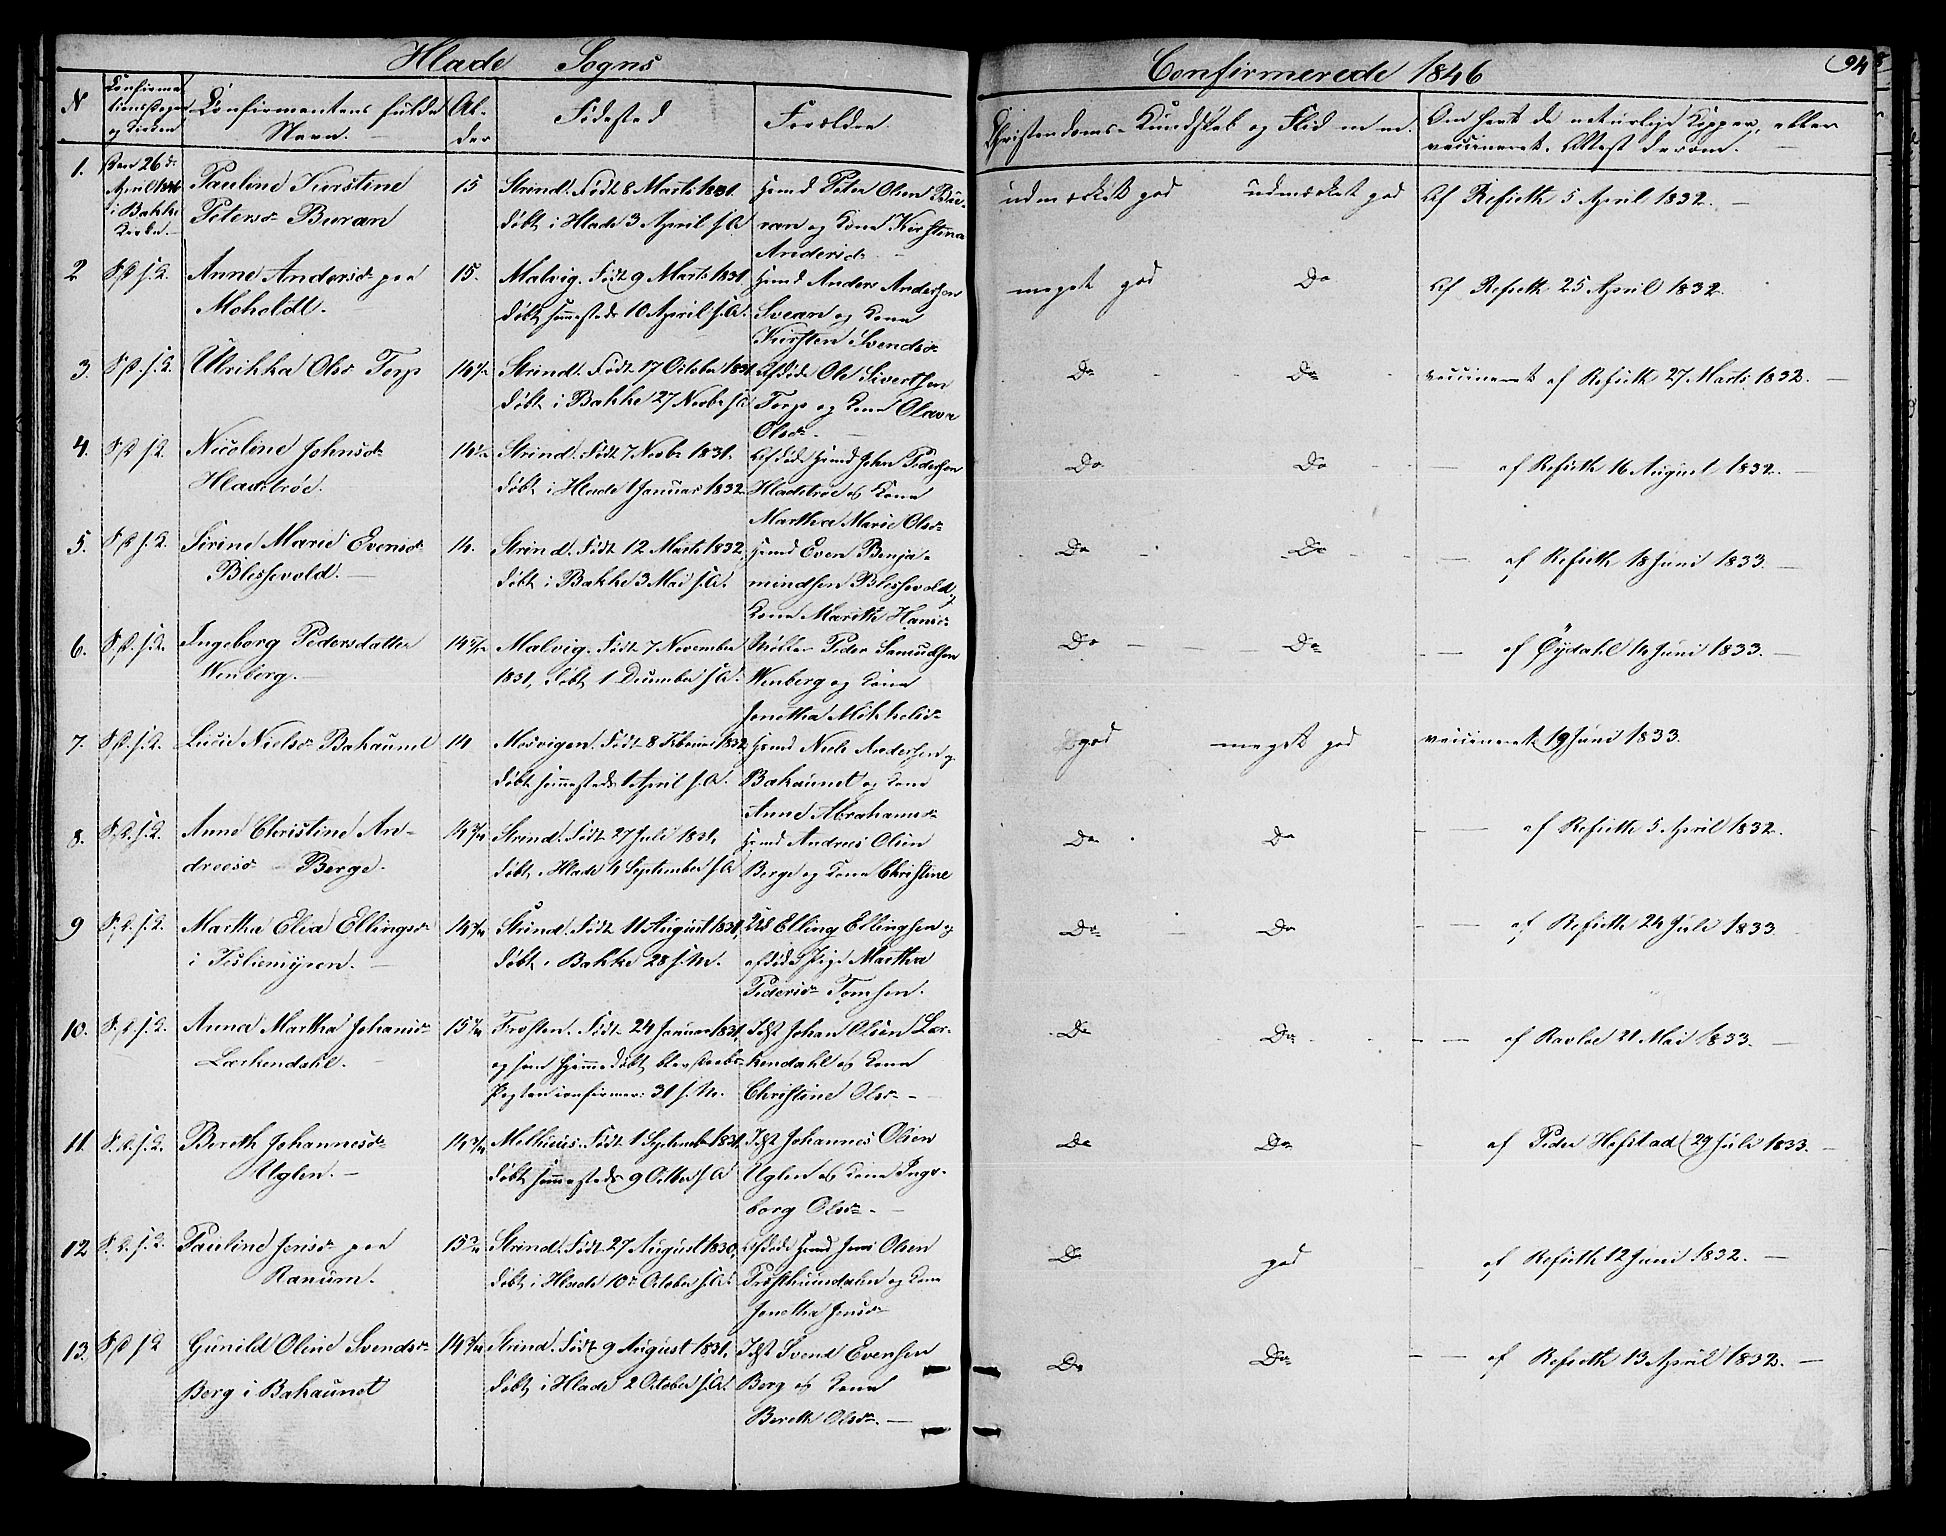 Hlade Sogns
Confirmerede 1846
94
N
Confirma-
tionsdagen
og Kirken
Confirmantens fulde
Navn.
Al-
der
Fødested
Forældre.
Christendoms-Kundskab og Flid m. m.
Om havt de naturlige Kopper, eller
vaccineret. Attest derom.
1.
Den 26de
April 1846
i Bakke
Kirke.
Pauline Kirstine
Petersdr Buran
15
Strind. Født 8 Marts 1831.
døbt i Hlade 3 April s. A.
Huusmd Peter Olsen Bu-
ran og Kone Kirstine
Andersdr
udmærket god
udmærket god
Af Refseth 5 April 1832.
2
S. D. s. K.
Anne Andersdr paa
Moholdt.
15.
Malvig. Født 9 Marts 1831
døbt sammesteds 10 April s. A.
Huusmd Anders Andersen
Svean og Kone
Kirsten Svendsdr
meget god
Do
Af Refseth 25 April 1832.
3
S. D. s. K.
Ulrikka Olsdr Torp
14 1/2
Strind. Født 17 October 1831
døbt i Bakke 27 Novbr s. A
Afdøde Ole Sivertsen
Torp og Kone Olava
Olsdr.
Do
Do
vaccineret af Refseth 27 Marts 1832.
4.
S. D. s. K.
Nicoline Johnsdr
Hladebroe.
14 1/2
Strind. Født 7 Novbr 1831.
døbt i Hlade 1 Januar 1832
Afdøde Huusmd John Pedersen
Hladebroe og Kone
Martha Marie Olsdr
Do
Do
af Refseth 16 August 1832.
5.
S. D. s. K.
Sirine Marie Evensdr
Blessevold.
14.
Strind. Født 12 Marts 1832
døbt i Bakke 3 Mai s. A.
Huusmd Even Benja-
mindsen Blessevold og
Kone Marith Hansdr
Do
Do
af Refseth 18 Juni 1833.
6.
S. D. s. K.
Ingeborg Pedersdatter
Wenberg.
Malvig. Født 7 November
1831, døbt 1 December s. A.
Møller Peder Samuelsen
Wenberg og Kone
Jonetha Mikkelsdr
Do
Do
af Øydahl 14 Juni 1833.
7.
S. D. s. K.
Lucie Nielsdr Bakaunet
14
Mosvigen. Født 8 Februar 1832
døbt sammesteds 1 April s. A.
Huusmd Niels Andersen
Bakaunet og Kone
Anne Abrahamsdr
god
meget god
vaccineret 19 Juni 1833.
8.
S. D. s. K.
Anne Christine An-
dreasdr Berge.
14 3/4
Strind. Født 27 Juli 1831.
døbt i Hlade 4 September s. A
Huusmd Andreas Olsen
Berge og Kone Christine
Do
Do
af Refseth 5 April 1832.
9
S. D. s. K.
Martha Elea Ellingsdr
i Tesliemyren.
14 3/4
Strind. Født 11 August 1831,
døbt i Bakke 28 s. M.
Elling Ellingsen og
afdøde Pige Martha
Pedersdr Tomsen.
Do
Do
af Refseth 24 Juli 1833.
10.
S. D. s. K.
Anna Martha Johansdr
Lærkendahl.
15 1/4
Frosten. Født 24 Januar 1831,
og som hjemmedøbt blev Daabs-
Pagten confirmer: 31 s. M.
Johan Olsen Lær-
kendahl og Kone
Christine Olsdr
Do
Do
af Ravloe 21 Mai 1833.
11
S. D. s. K.
Bereth Johannesdr
Uglen.
14 3/4
Melhuus. Født 1 September 1831.
døbt sammesteds 9 October s. A
Johannes Olsen
Uglen og Kone Inge-
borg Olsdr.
Do
Do
af Peder Hofstad 29 Juli 1833.
12
S. D. s. K.
Pauline Jensdr paa
Ranum.
15 3/4
Strind. Født 27 August 1830,
døbt i Hlade 10de October s. A.
Afdøde Huusmd Jens Olsen
Presthuusdalen og Kone
Jonetha Jensdr
Do
god
af Refseth 12 Juni 1832.
13.
S. D. s. K
Gunild Oline Svendsdr
Berg i Bakaunet
14 3/4
Strind. Født 9 August 1831.
døbt i Hlade 2 October s. A.
Svend Evensen
Berg og Kone
Bereth Olsdr.
Do
Do
af Refseth 13 April 1832.